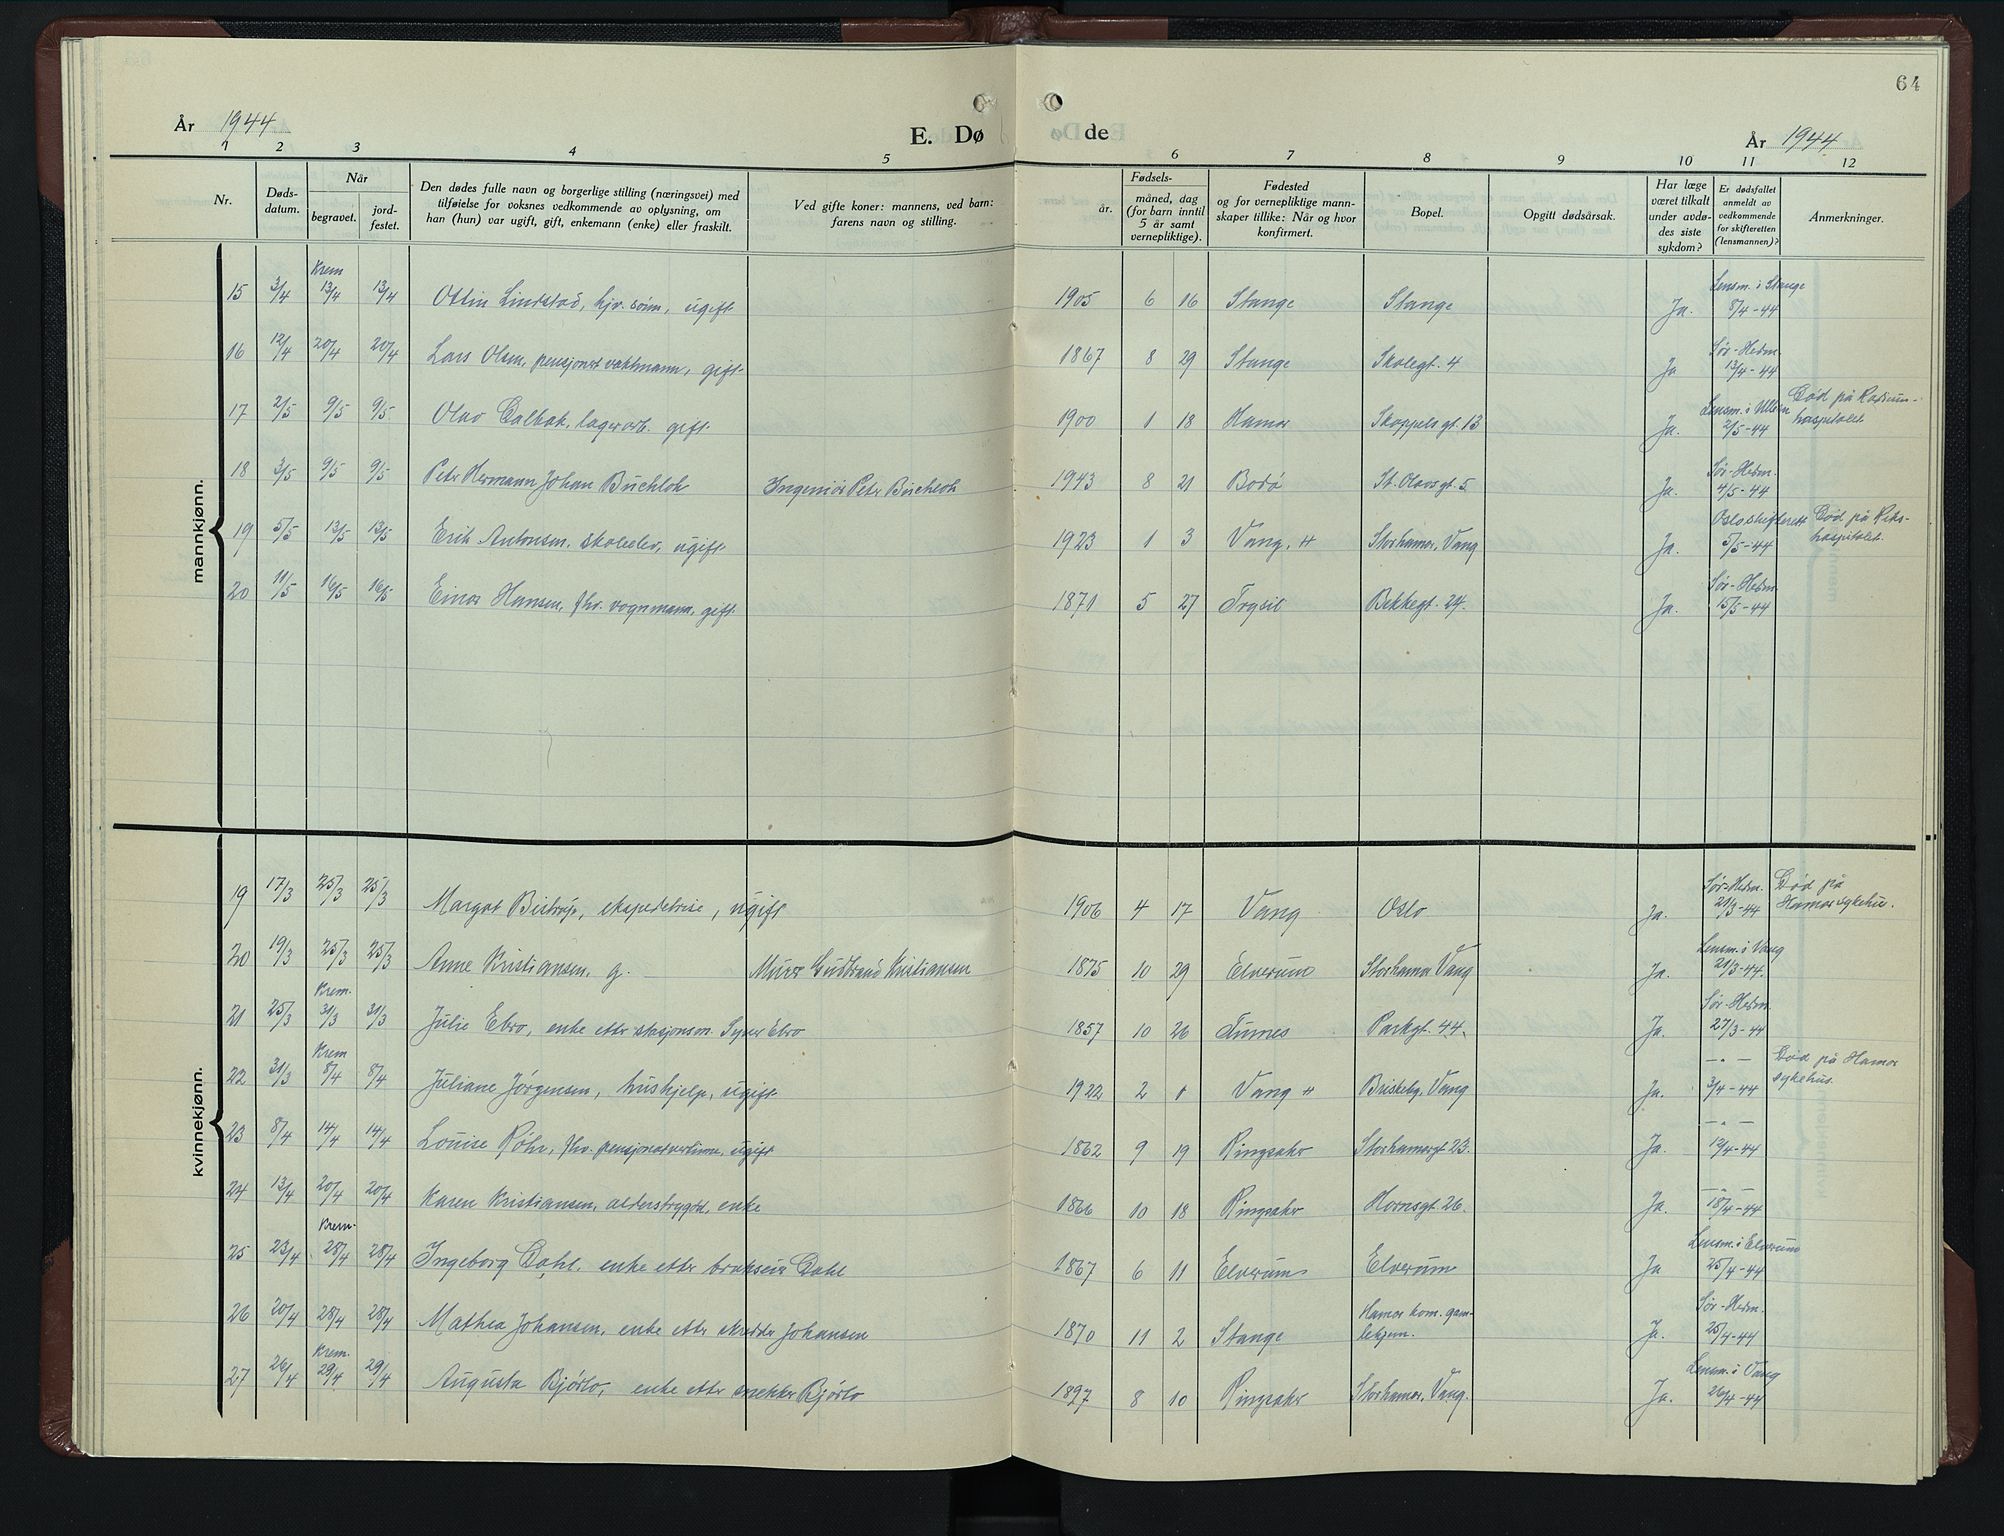 64
År 1944
E. Dø de
År 1944
1 2 3 4 5 6 7 8 9 10 11 12
Nr.
Døds-
datum.
Når
begravet.
jord-
festet.
Den dødes fulle navn og borgerlige stilling (næringsvei) med
tilføielse for voksnes vedkommende av oplysning, om
han (hun) var ugift, gift, enkemann (enke) eller fraskilt.
Ved gifte koner: mannens, ved barn:
farens navn og stilling.
Fødsels-
år.
måned, dag
(for barn inntil
5 år samt
vernepliktige).
Fødested
og for vernepliktige mann-
skaper tillike: Når og hvor
konfirmert.
Bopel.
Opgitt dødsårsak.
Har læge
været tilkalt
under avdø-
des siste
sykdom?
Er dødsfallet
anmeldt av
vedkommende
for skifteretten
(lensmannen)?
Anmerkninger.
mannkjønn.
15 3/4 Krem 13/4 13/4 Ottin Lindstad, hjv. sønn, ugift 1905 6 16 Stange Stange Ja. Lensm. i Stange 8/4-44
16 12/4 20/4 20/4 Lars Olsen, pensjonert vaktmann, gift 1867 8 29 Stange Skolegt. 4 Ja Sør-Hedm. 13/4-44
17 2/5 9/5 9/5 Olav Dalbak, lagerarb. gift 1900 1 18 Hamar Skappelsgt. 13 Ja. Lensm. i Ullern 2/5-44 Død på Radium-
hospitalet
18 3/5 9/5 9/5 Peter Hermann Johan Buchloh Ingeniør Peter Buchloh 1943 8 21 Bodø St. Olavsgt. 5 Ja. Sør-Hedm. 4/5-44
19 5/5 13/5 13/5 Erik Antonsen, skoleelev, ugift 1923 1 3 Vang, H Storhamar, Vang Ja. Oslo skifterett 5/5-44 Død på Riks-
hospitalet.
20 11/5 16/5 16/5 Einar Hansen, fhv. vognmann, gift 1871 5 27 Trysil Bekkegt. 24. Ja. Sør-Hedm 15/5-44
kvinnekjønn.
19 17/3 25/3 25/3 Margot Bistrup, ekspeditrise, ugift 1906 4 17 Vang Oslo Ja. Sør-Hedm. 21/3-44 Død på
Hamar sykehu.
20 19/3 25/3 25/3 Anne Kristiansen, g. Murer Gudbrand Kristiansen 1875 10 29 Elverum Storhamar Vang Ja. Lensm. i Vang 21/3-44.
21 25/3 Krem. 31/3 31/3 Julie Ebro, enke etter stasjonsm. Syver Ebro 1857 10 26 Furnes Parkgt. 44. Ja. Sør-Hedm. 27/3-44
22 31/3 Krem 8/4 8/4 Juliane Jørgensen, hushjelp, ugift 1922 2 1 Vang H Briskeby, Vang Ja. — " — 3/4-44 Død på Hamar
sykehus.
23 8/4 14/4 14/4 Louise Røhr, fhv. pensjonatvertinne, ugift 1862 9 19 Ringsaker Storhamargt 23. Ja. — " — 12/4-44
24 13/4 20/4 20/4 Karen Kristiansen, alderstrygdet, enke 1866 10 18 Ringsaker Hornsgt. 26. Ja. — " — 18/4-44
25 23/4 Krem. 28/4 28/4 Ingeborg Dahl. enke etter brukseier Dahl 1867 6 11 Elverum Elverum Ja Lensm. i Elverum 25/4-44
26 20/4 28/4 28/4 Mathea Johansen, enke etter skredder Johansen 1870 11 2 Stange Hamar kom. gam-
lehjem. Ja. Sør-Hedm. 25/4-44
27 26/4 Krem. 29/4 29/4 Augusta Bjørlo, enke etter snekker Bjørlo 1897 8 10 Ringsaker Storhamar, Vang. Ja. Lensm. i Vang 26/4-44